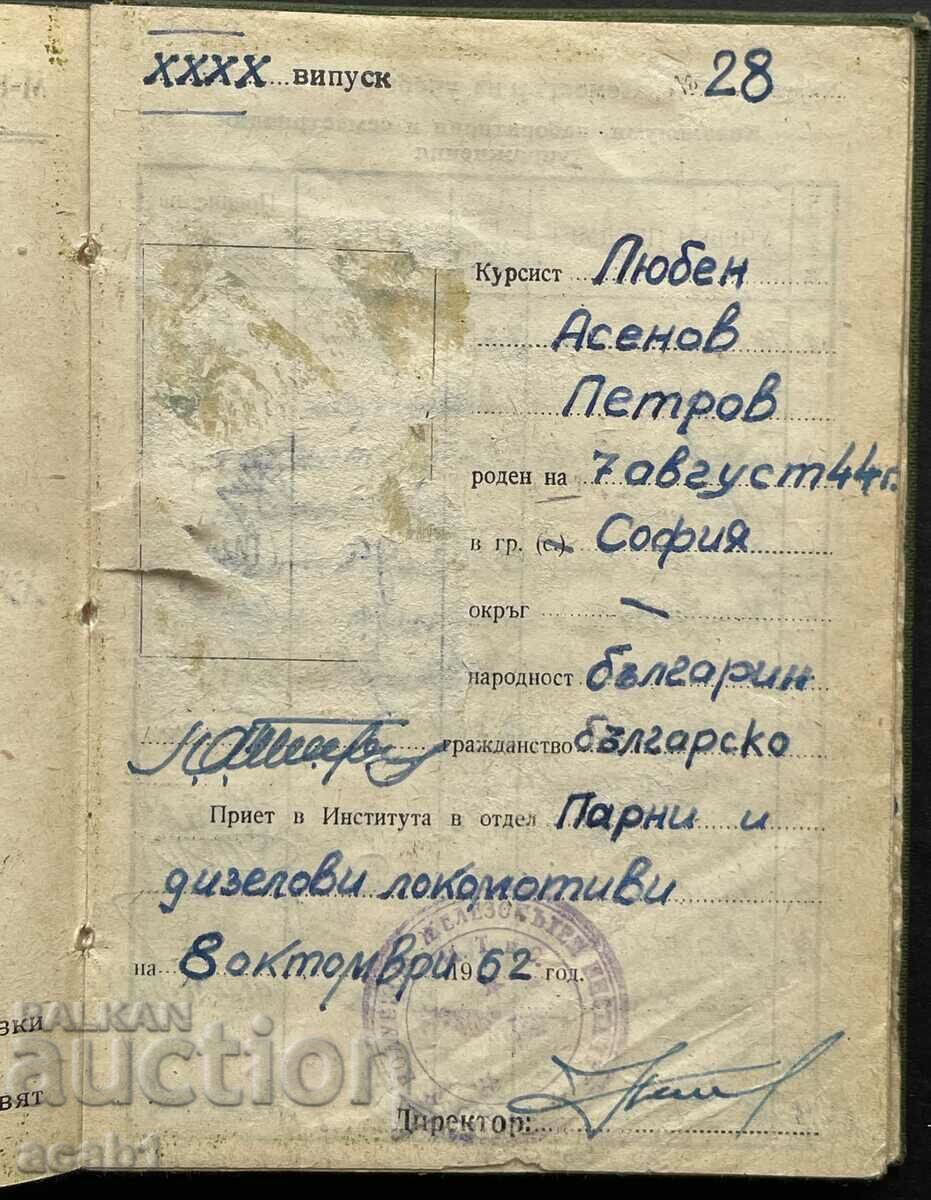 XXXX випуск № 28
Курсист Любен
Асенов
Петров
роден на 7 август 44 г.
в гр. (с.) София
окръг —
народност българин
гражданство българско
Приет в Института в отдел Парни и
дизелови локомотиви
на 8 октомври 1962 год.
Директор:
зки
вят
BALKAN
auction
acab1